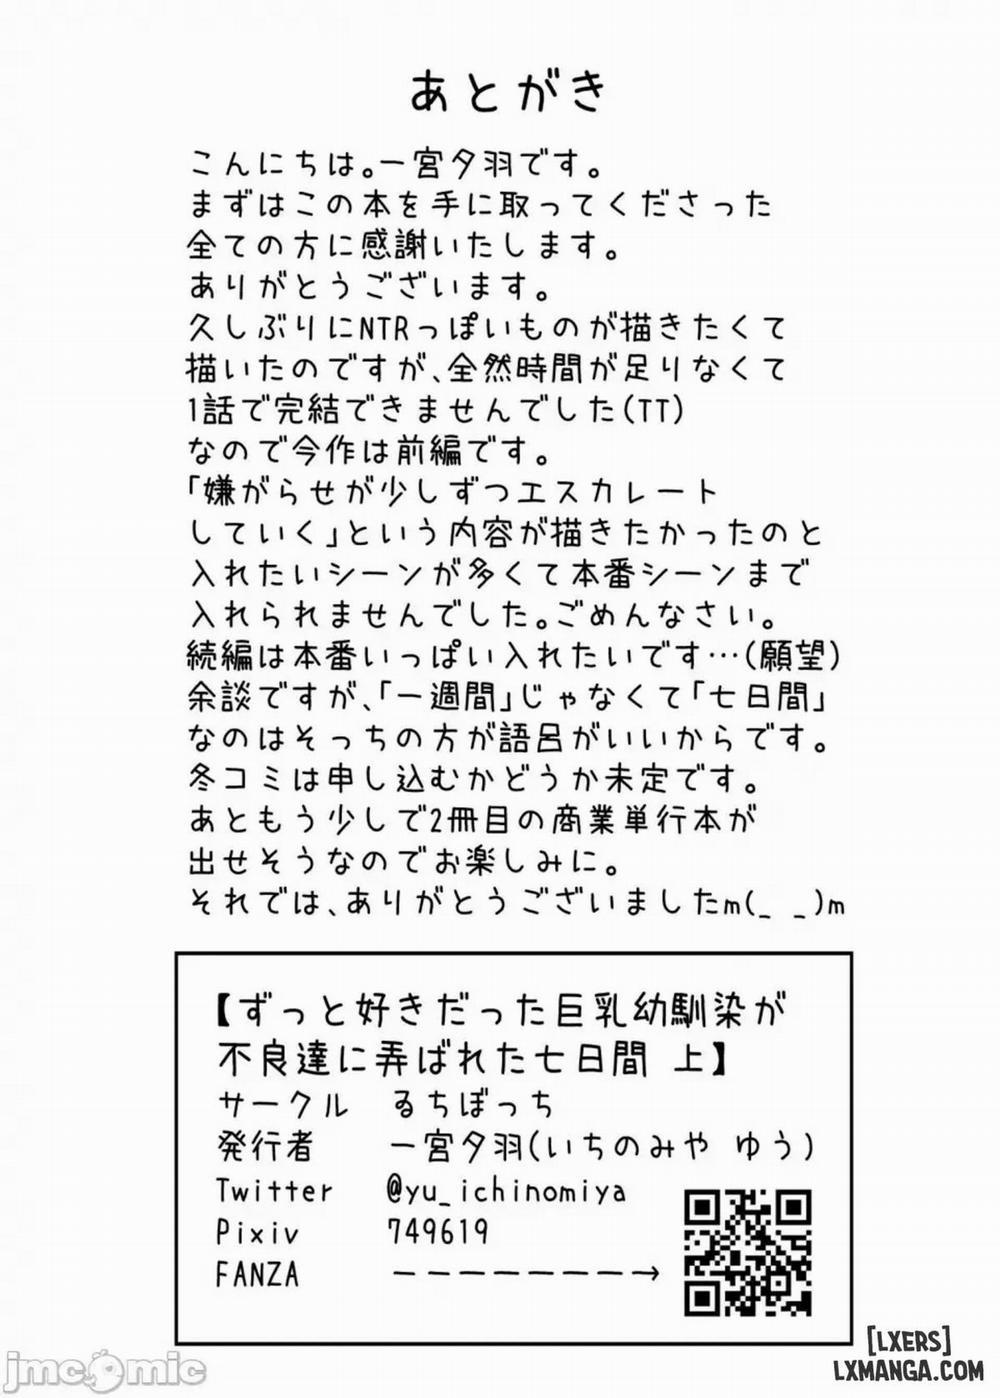 あとがき
こんにちは。一宮夕羽です。
まずはこの本を手に取ってくださった
全ての方に感謝いたします。
ありがとうございます。
久しぶりにNTRっぽいものが描きたくて
描いたのですが、全然時間が足りなくて
1話で完結できませんでした(TT)
なので今作は前編です。
「嫌がらせが少しずつエスカレート
していく」という内容が描きたかったのと
入れたいシーンが多くて本番シーンまで
入れられませんでした。ごめんなさい。
続編は本番いっぱい入れたいです…(願望)
余談ですが、「一週間」じゃなくて「七日間」
なのはそっちの方が語呂がいいからです。
冬コミは申し込むかどうか未定です。
あともう少しで2冊目の商業単行本が
出せそうなのでお楽しみに。
それでは、ありがとうございましたm(_ _)m
【ずっと好きだった巨乳幼馴染が
不良達に弄ばれた七日間 上】
サークル るちぼっち
発行者 一宮夕羽(いちのみや ゆう)
Twitter @yu_ichinomiya
Pixiv 749619
FANZA ーーーーーーーー→
jmcomic
[LXERS]
LXMANGA.COM